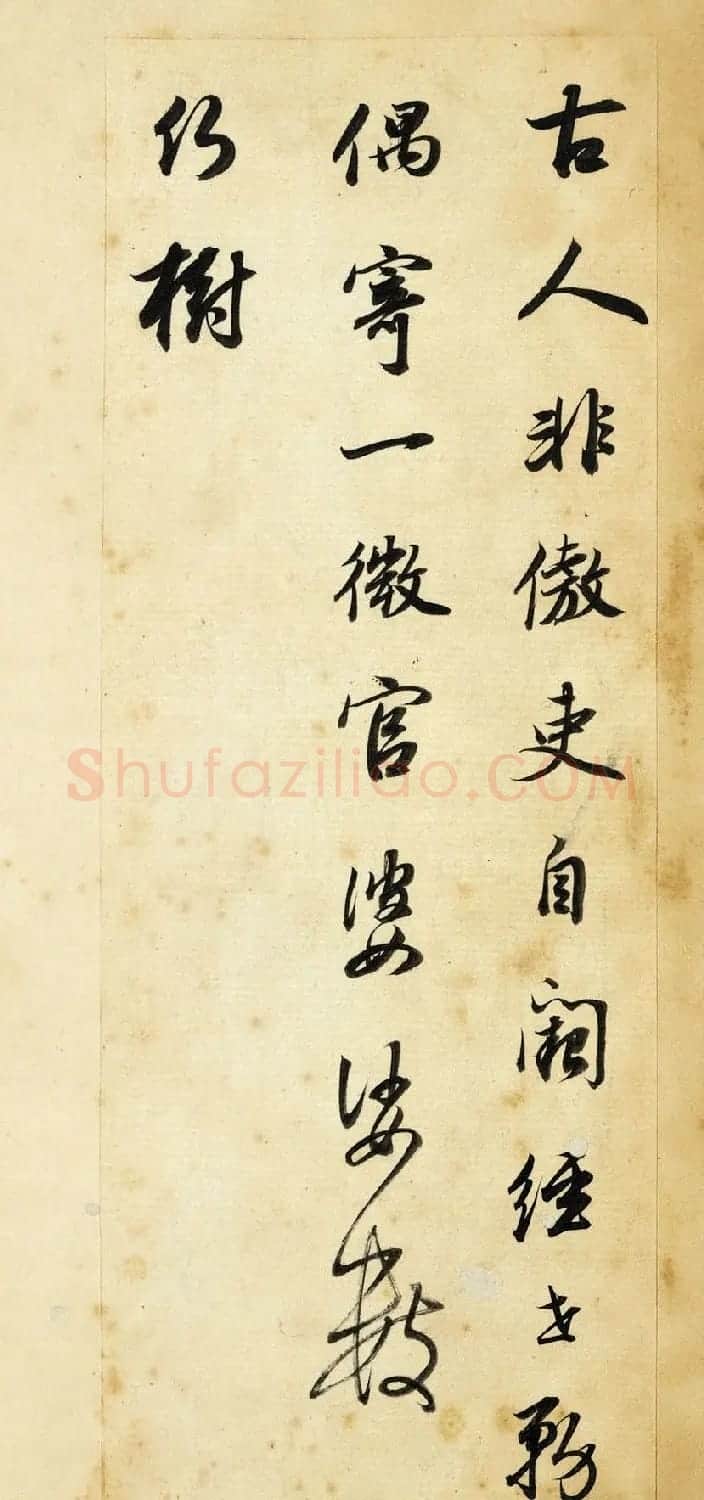 古人非傲吏自闕經世務
偶寄一微官婆娑數
仞樹
Shufaziliao.COM